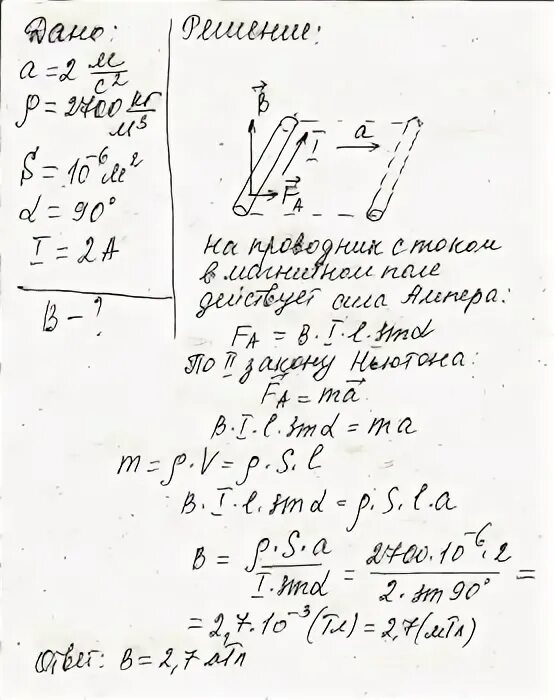 Дано:
a = 2 м/с²
ρ = 2700 кг/м³
S = 10⁻⁶ м²
α = 90°
I = 2 А
B – ?
Решение:
B⃗
I
a⃗
F⃗А
на проводник с током
в магнитном поле
действует сила Ампера:
FА = B · I · l · sinα
По II закону Ньютона:
F⃗А = ma⃗
B · I · l · sinα = ma
m = ρ · V = ρ · S · l
B · I · l · sinα = ρ · S · l · a
B = ρ · S · a / I · sinα = 2700 · 10⁻⁶ · 2 / 2 · sin 90° =
= 2,7 · 10⁻³ (Тл) = 2,7 (мТл)
Ответ: B = 2,7 мТл